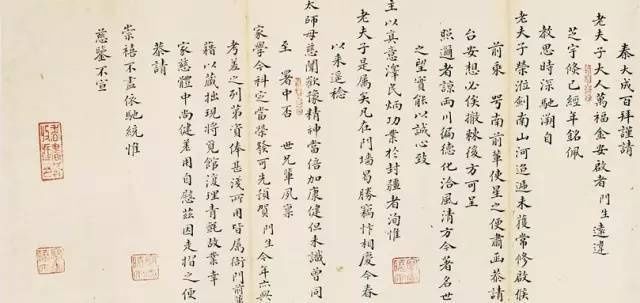 秦大成百拜謹請
老夫子大人萬福金安啟者門生遠違
芝宇倏已經年銘佩
教思時深馳溯自
老夫子榮涖劍南山河迢遞未獲常修啟候
前乘 南前輩使星之便肅函恭請
台安想必俟撤棘後方可呈
照邇者諒兩川徧德化洽風清方今著名世
之望實能以誠心致
主以真意澤民炳功業於封疆者洵惟
老夫子是屬矣凡在門墻曷勝竊忭相慶今春
以來遥稔
太師母慈闈歡豫精神當倍加康健但未識曾同
至 署中否 世兄輩夙稟
家學今科定當榮發可先預賀門生今年六與
考差之列第資俸甚淺所用皆属衙門前輩
籍以藏拙現將覓館復理青氊故業幸
家慈體中尚健差用自慰茲因走摺之便
恭請
崇禧不盡依馳統惟
慈鑒不宣